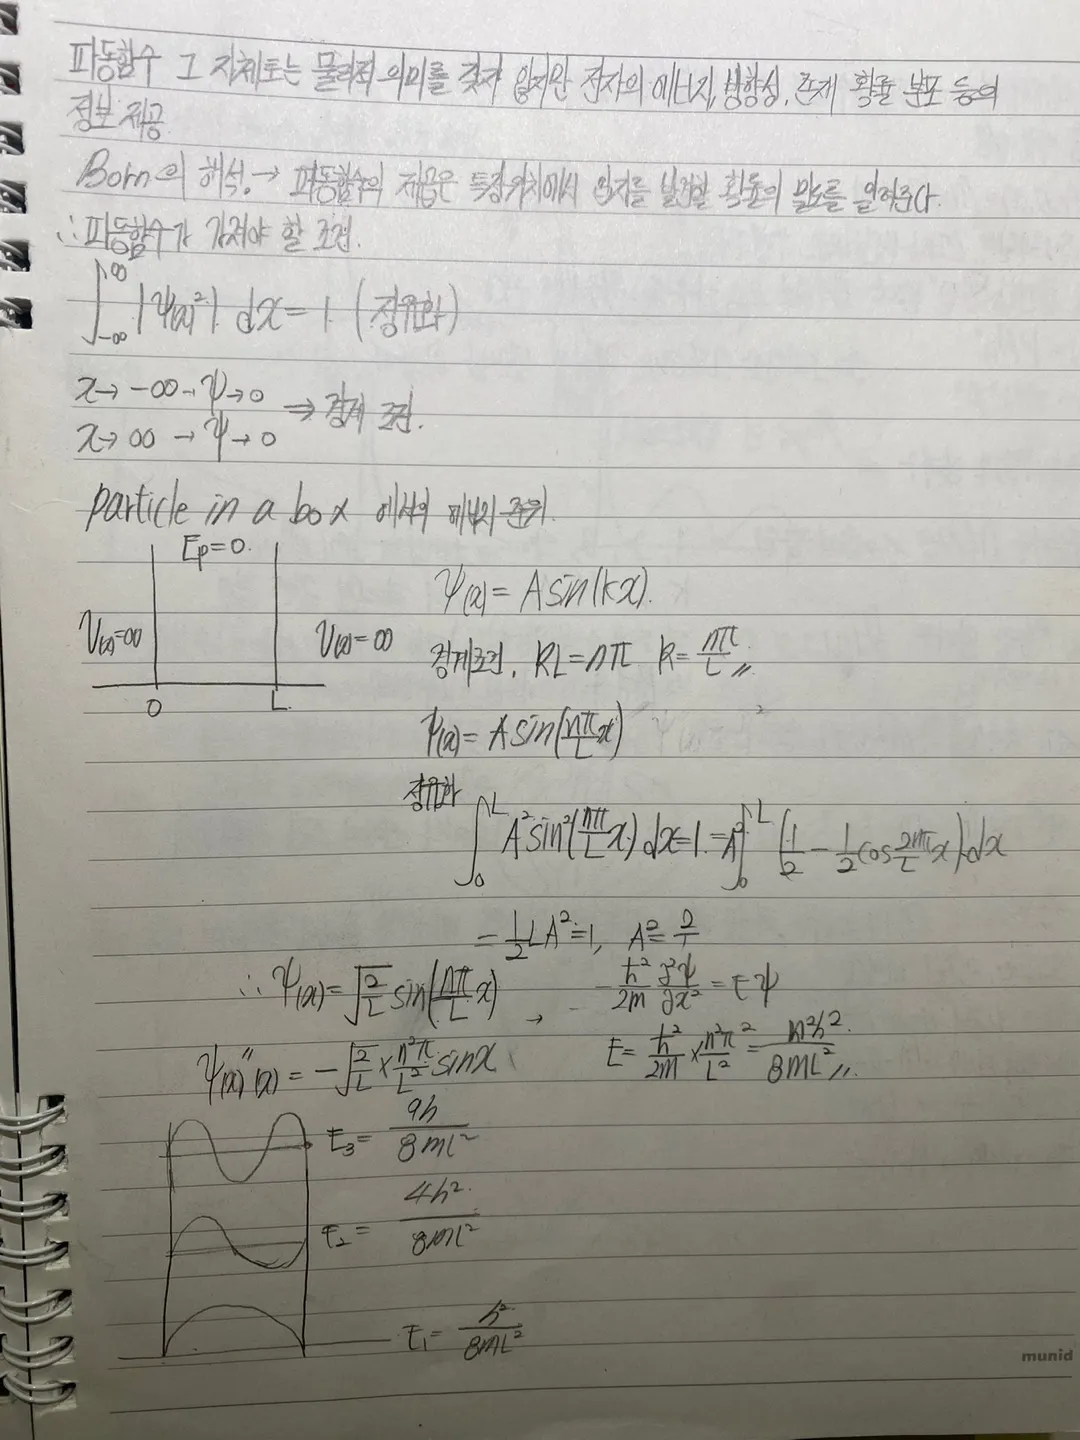 파동함수 그 자체로는 물리적 의미를 갖지 않지만 전자의 에너지, 방향성, 존재 확률 분포 등의
정보 제공.
Born의 해석. → 파동함수의 제곱은 특정위치에서 입자를 발견할 확률의 밀도를 알려준다.
∴ 파동함수가 가져야 할 조건.
∫_{-∞}^{∞} |Ψ(x)²| dx = 1. (정규화)
x → -∞ → Ψ → 0
x → ∞ → Ψ → 0 ⇒ 경계 조건.
particle in a box 에서의 에너지 준위.
Ep=0.
V(x)=∞ V(x)=∞
0 L
Ψ(x) = A sin(kx).
경계조건, kL = nπ k = nπ/L〃
Ψ(x) = A sin(nπ/L x)
정규화
∫₀ᴸ A² sin²(nπ/L x) dx = 1. = A² ∫₀ᴸ (1/2 - 1/2 cos 2nπ/L x) dx
= 1/2 L A² = 1, A² = 2/L
∴ Ψ(x) = √(2/L) sin(nπ/L x) → -ħ²/2m ∂²Ψ/∂x² = EΨ
Ψ(x)″(x) = -√(2/L) × n²π/L² sinx E = ħ²/2m × n²π²/L² = n²h²/8mL²〃
E₃ = 9h/8mL²
E₂ = 4h²/8mL²
E₁ = h²/8mL²
munid